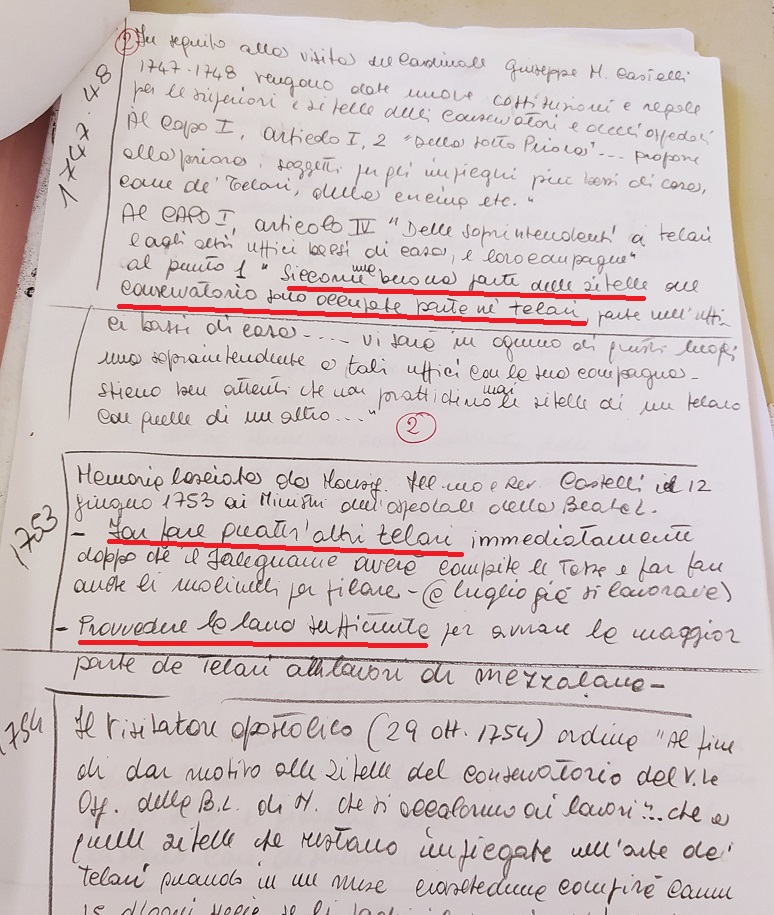 ② In seguito alla visita del Cardinale Giuseppe M. Castelli
1747-48
1747-1748 vengono date nuove costituzioni e regole
per le superiori e zitelle delli Conservatori e dell'ospedali
Al Capo I, articolo I, 2 "Della sotto Priora"... propone
alla priora i soggetti per gli impieghi più bassi di casa,
come de' Telari, della cucina etc."
Al CAPO I, articolo IV "Delle soprintendenti a telari
e agli altri uffici bassi di casa, e loro compagne"
al punto 1 "Siccome una buona parte delle zitelle del
Conservatorio sono occupate parte ne' telari, parte nell'uffi
ci bassi di casa.... vi sarà in ognuno di questi luoghi
una sopraintendente a tali uffici con la sua compagna-
stieno ben attenti che non prattichino mai le zitelle di un telaro
con quelle di un altro...."
②
1753
Memoria lasciata da Monsig. Ill.mo e Rev. Castelli il 12
giugno 1753 ai Ministri dell'ospedale della Beata L.
- Far fare quattr'altri telari immediatamente
doppo che il falegname averà compite le  e far fare
anche li molinelli per filare - (a luglio già si lavorava)
- Provvedere la lana sufficiente per avviare la maggior
parte de Telari alli lavori di mezzalana-
1754
Il Visitatore apostolico (29 ott. 1754) ordina "Al fine
di dar motivo alle zitelle del conservatorio del V.le
Osp. della B.L. di N. che si accalorino ai lavori"... che a
quelle zitelle che restano impiegate nell'arte dei
telari quando in un mese ciascheduna compirà canne